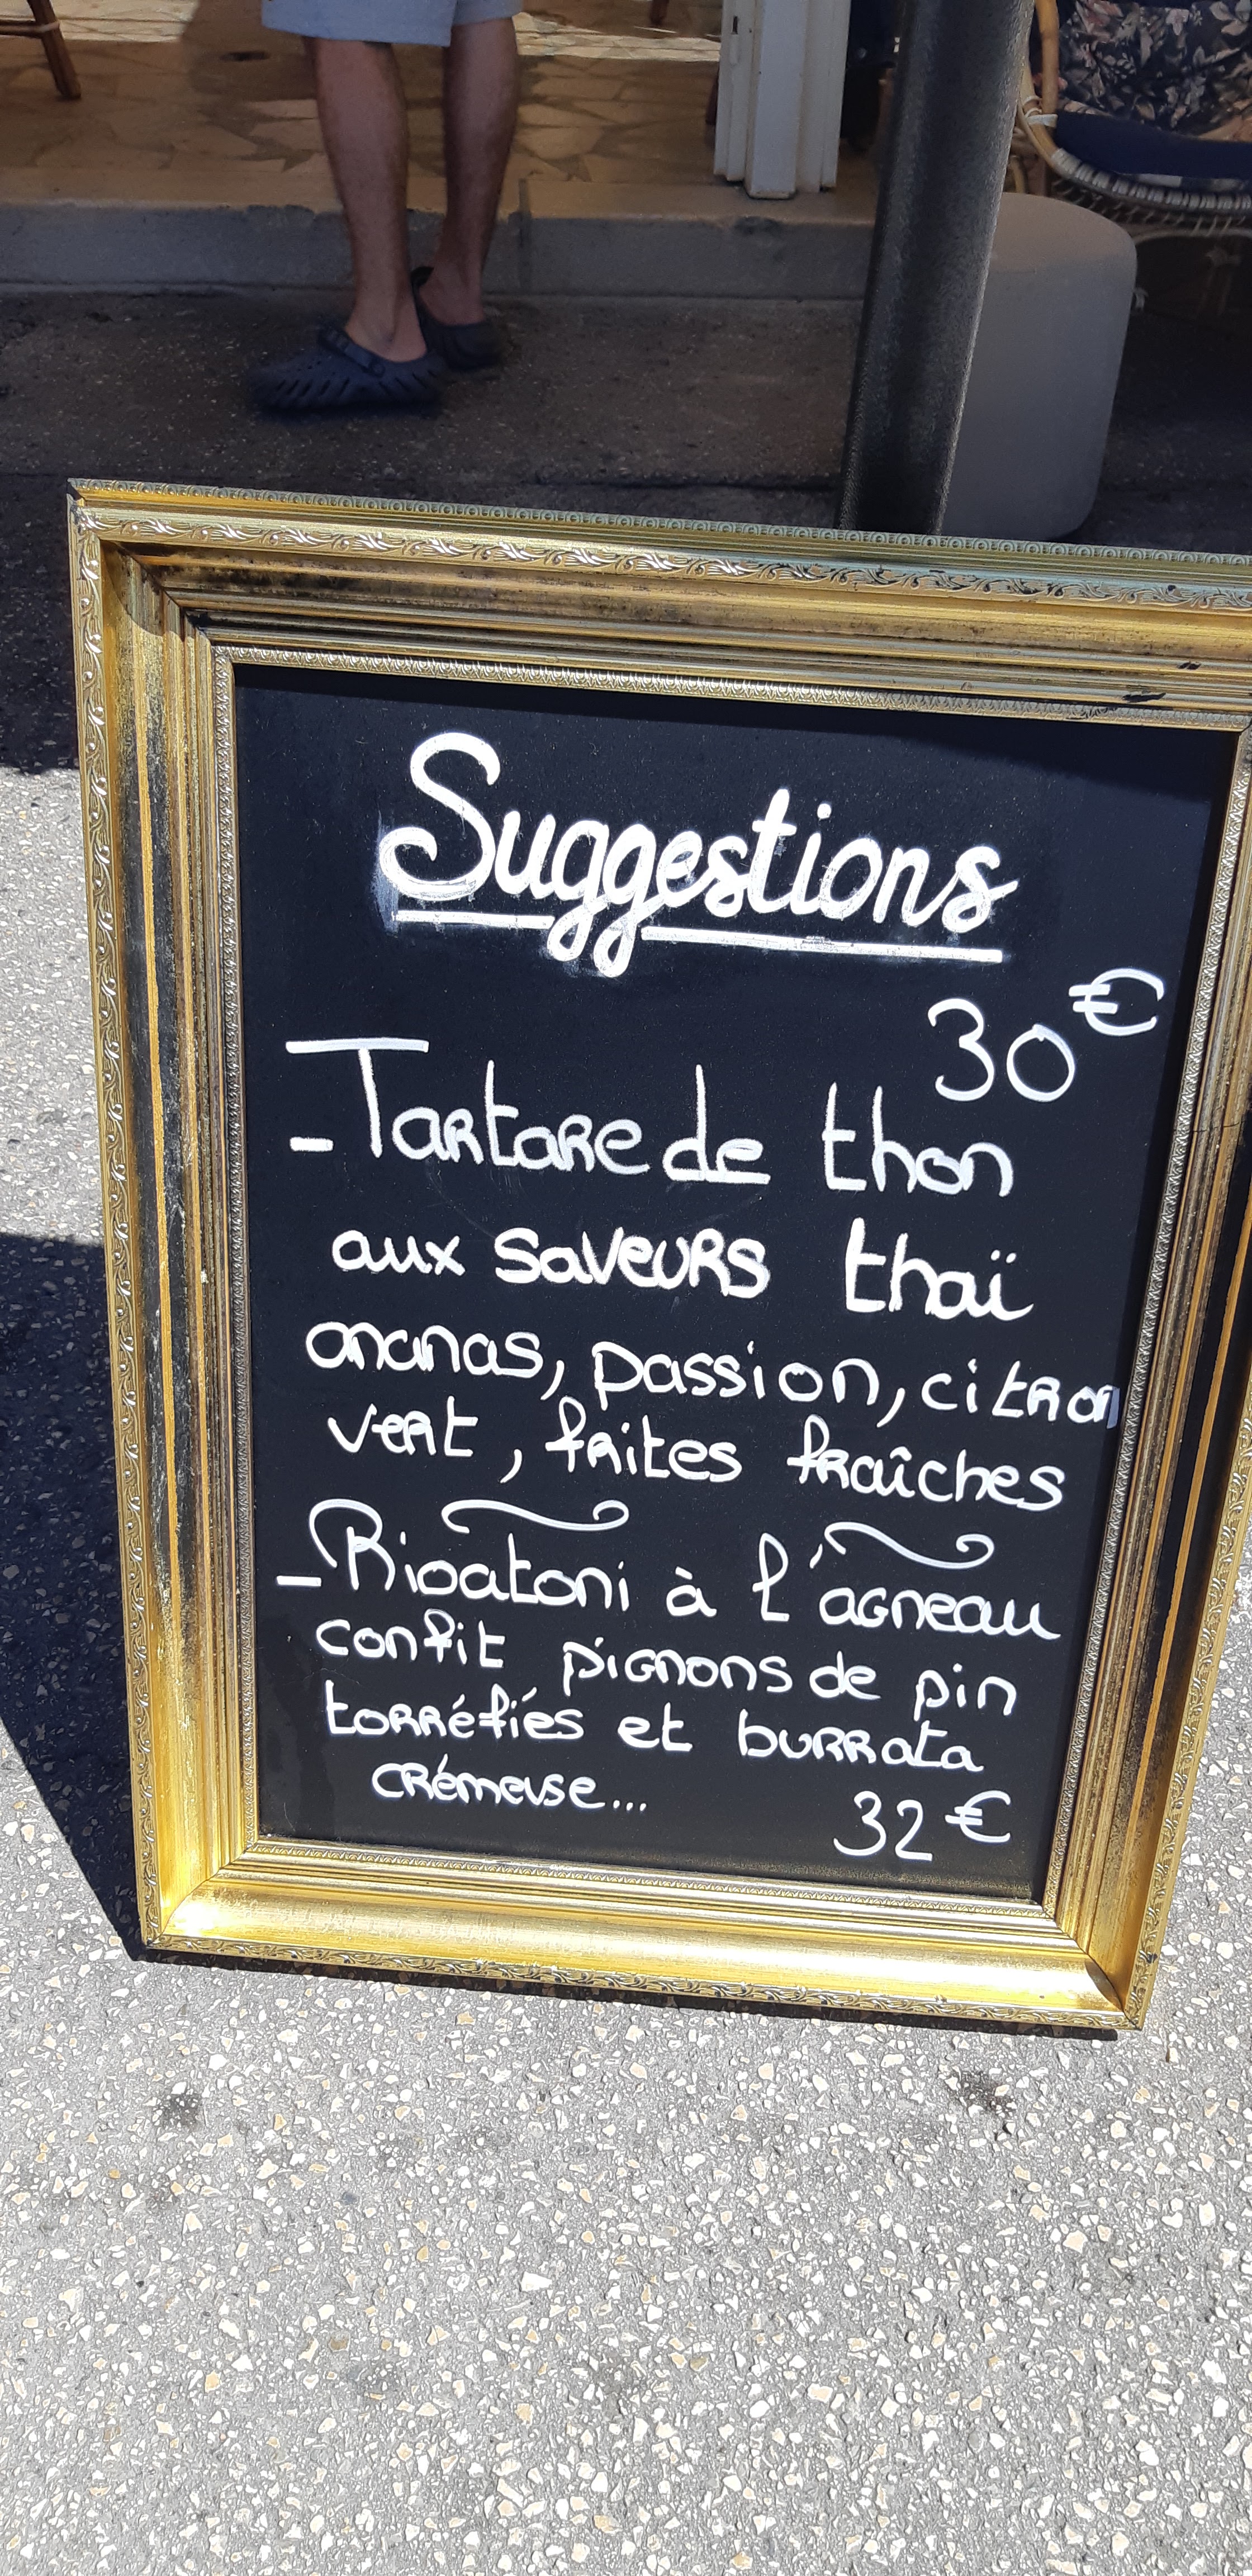 Suggestions
30€
- Tartare de thon
aux saveurs thaï
ananas, passion, citron
vert, frites fraîches
- Rigatoni à l'agneau
confit pignons de pin
torréfiés et burrata
crémeuse...
32€